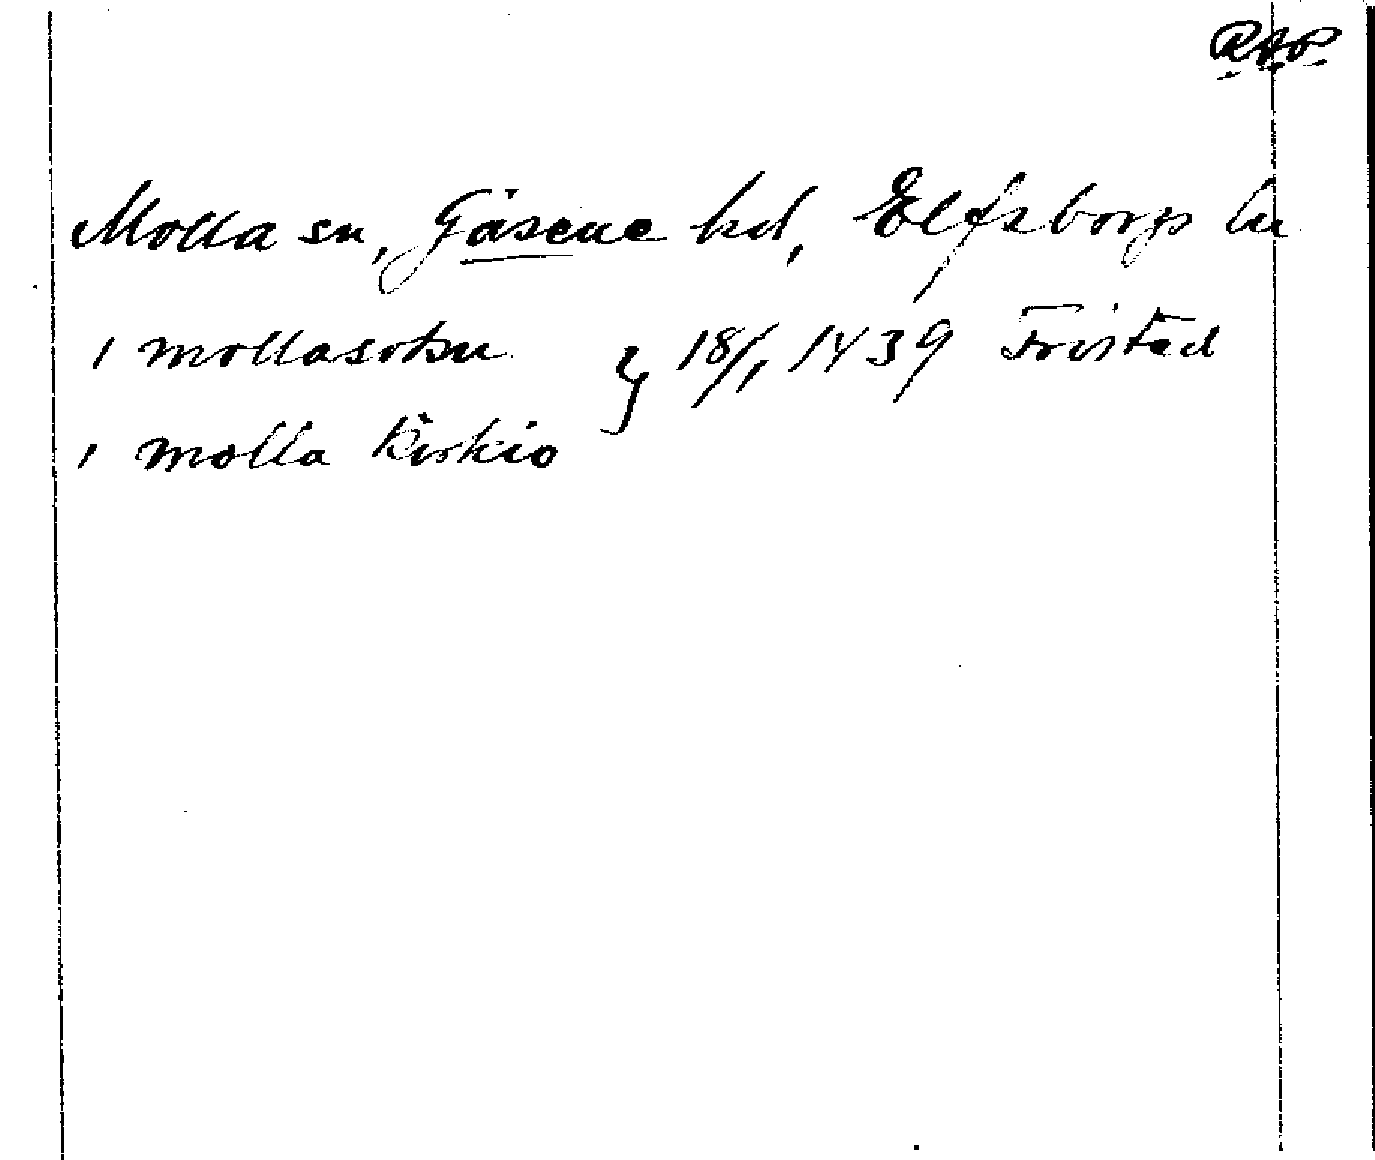 RAP
Molla sn, Gäsene hd, Elfsborgs ln
i mollasokn } 18/1 1439 Fristad
i molla kirkio